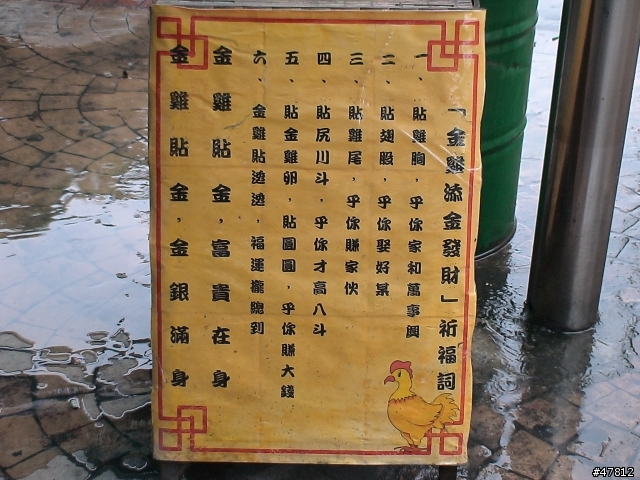 「金雞添金發財」祈福詞
一、貼雞胸，乎你家和萬事興
二、貼翅股，乎你娶好某
三、貼雞尾，乎你賺家伙
四、貼尻川斗，乎你才高八斗
五、貼金雞卵，貼圓圓，乎你賺大錢
六、金雞貼透透，福運攏總到
金雞貼金，富貴在身
金雞貼金，金銀滿身
#47812